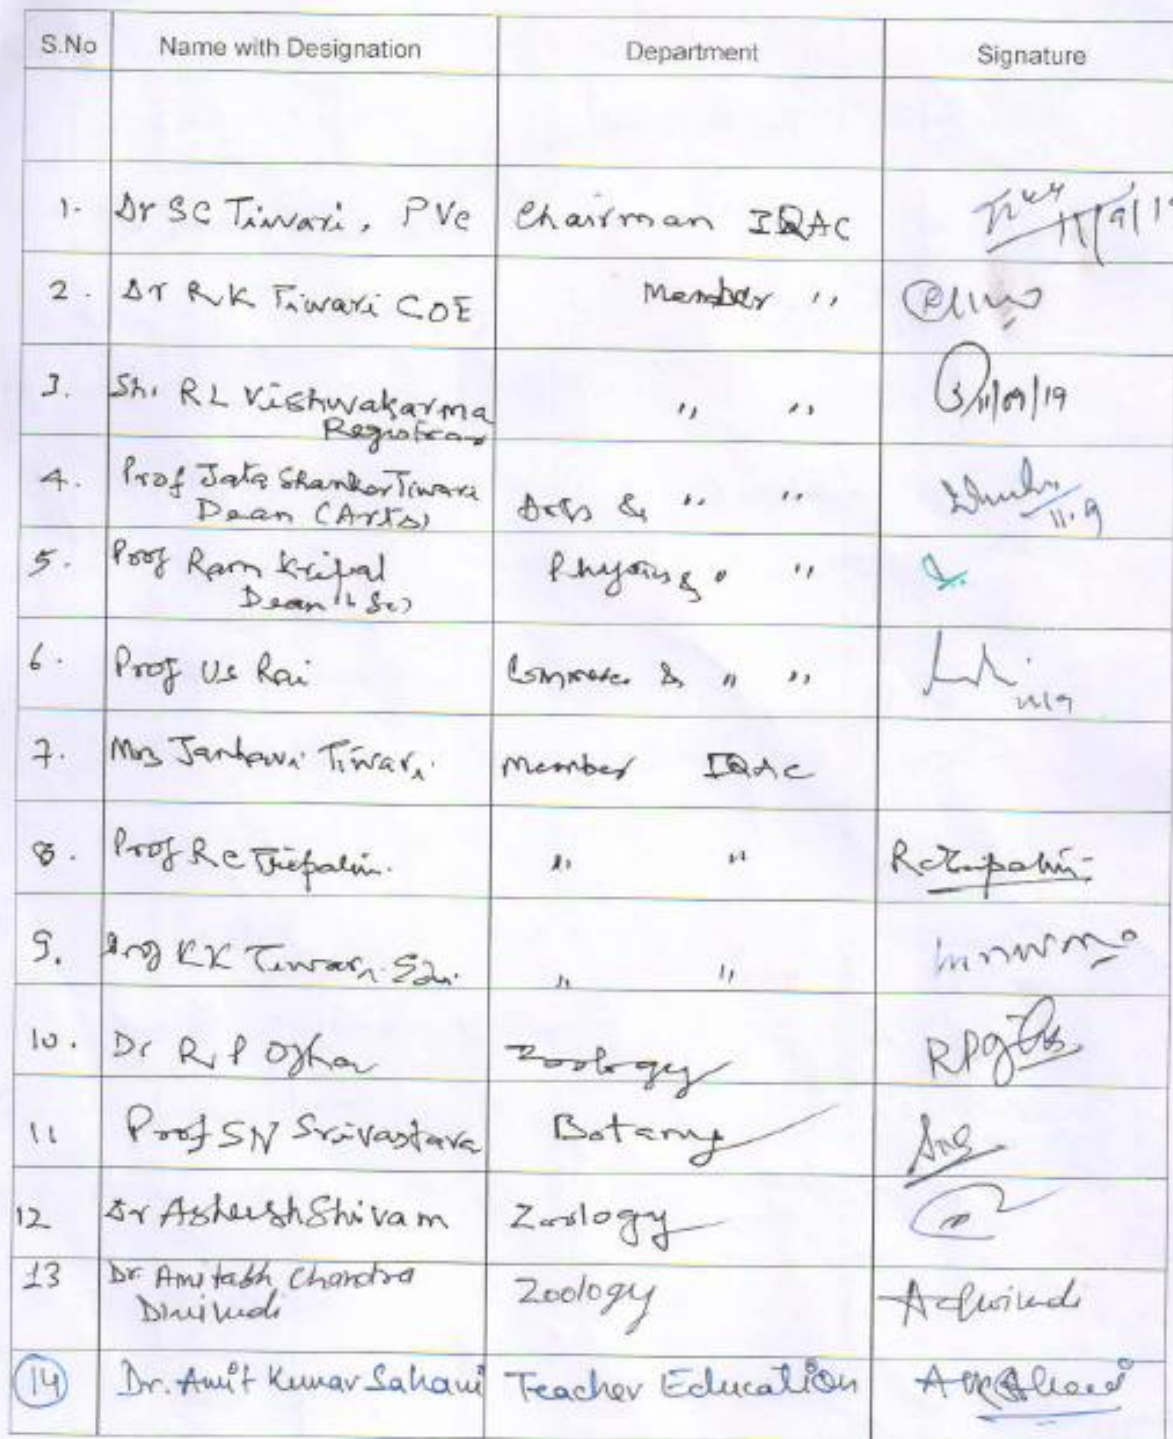 S.No Name with Designation Department Signature
1. Dr SC Tiwari, PVC Chairman IQAC 11/9/19
2. Dr R.K Tiwari COE Member "
3. Sh. RL Vishwakarma " " 11/09/19
Registrar
4. Prof Jata Shanker Tiwari
Dean (Arts) Arts & " " 11.9
5. Prof Ram Kripal Physics & " "
Dean (Sc)
6. Prof US Rai Commerce & " " 11/9
7. Mrs Janhavi Tiwari. Member IQAC
8. Prof RC Tripathi. " " RcTripathi
9. Prof KK Tiwari " "
10. Dr R.P Ojha Zoology RPOjha
11 Prof SN Srivastava Botany
12 Dr Asheesh Shivam Zoology
13 Dr. Amitabh Chandra
Dwivedi Zoology Acdwivedi
14 Dr. Amit Kumar Sahani Teacher Education AKSahani